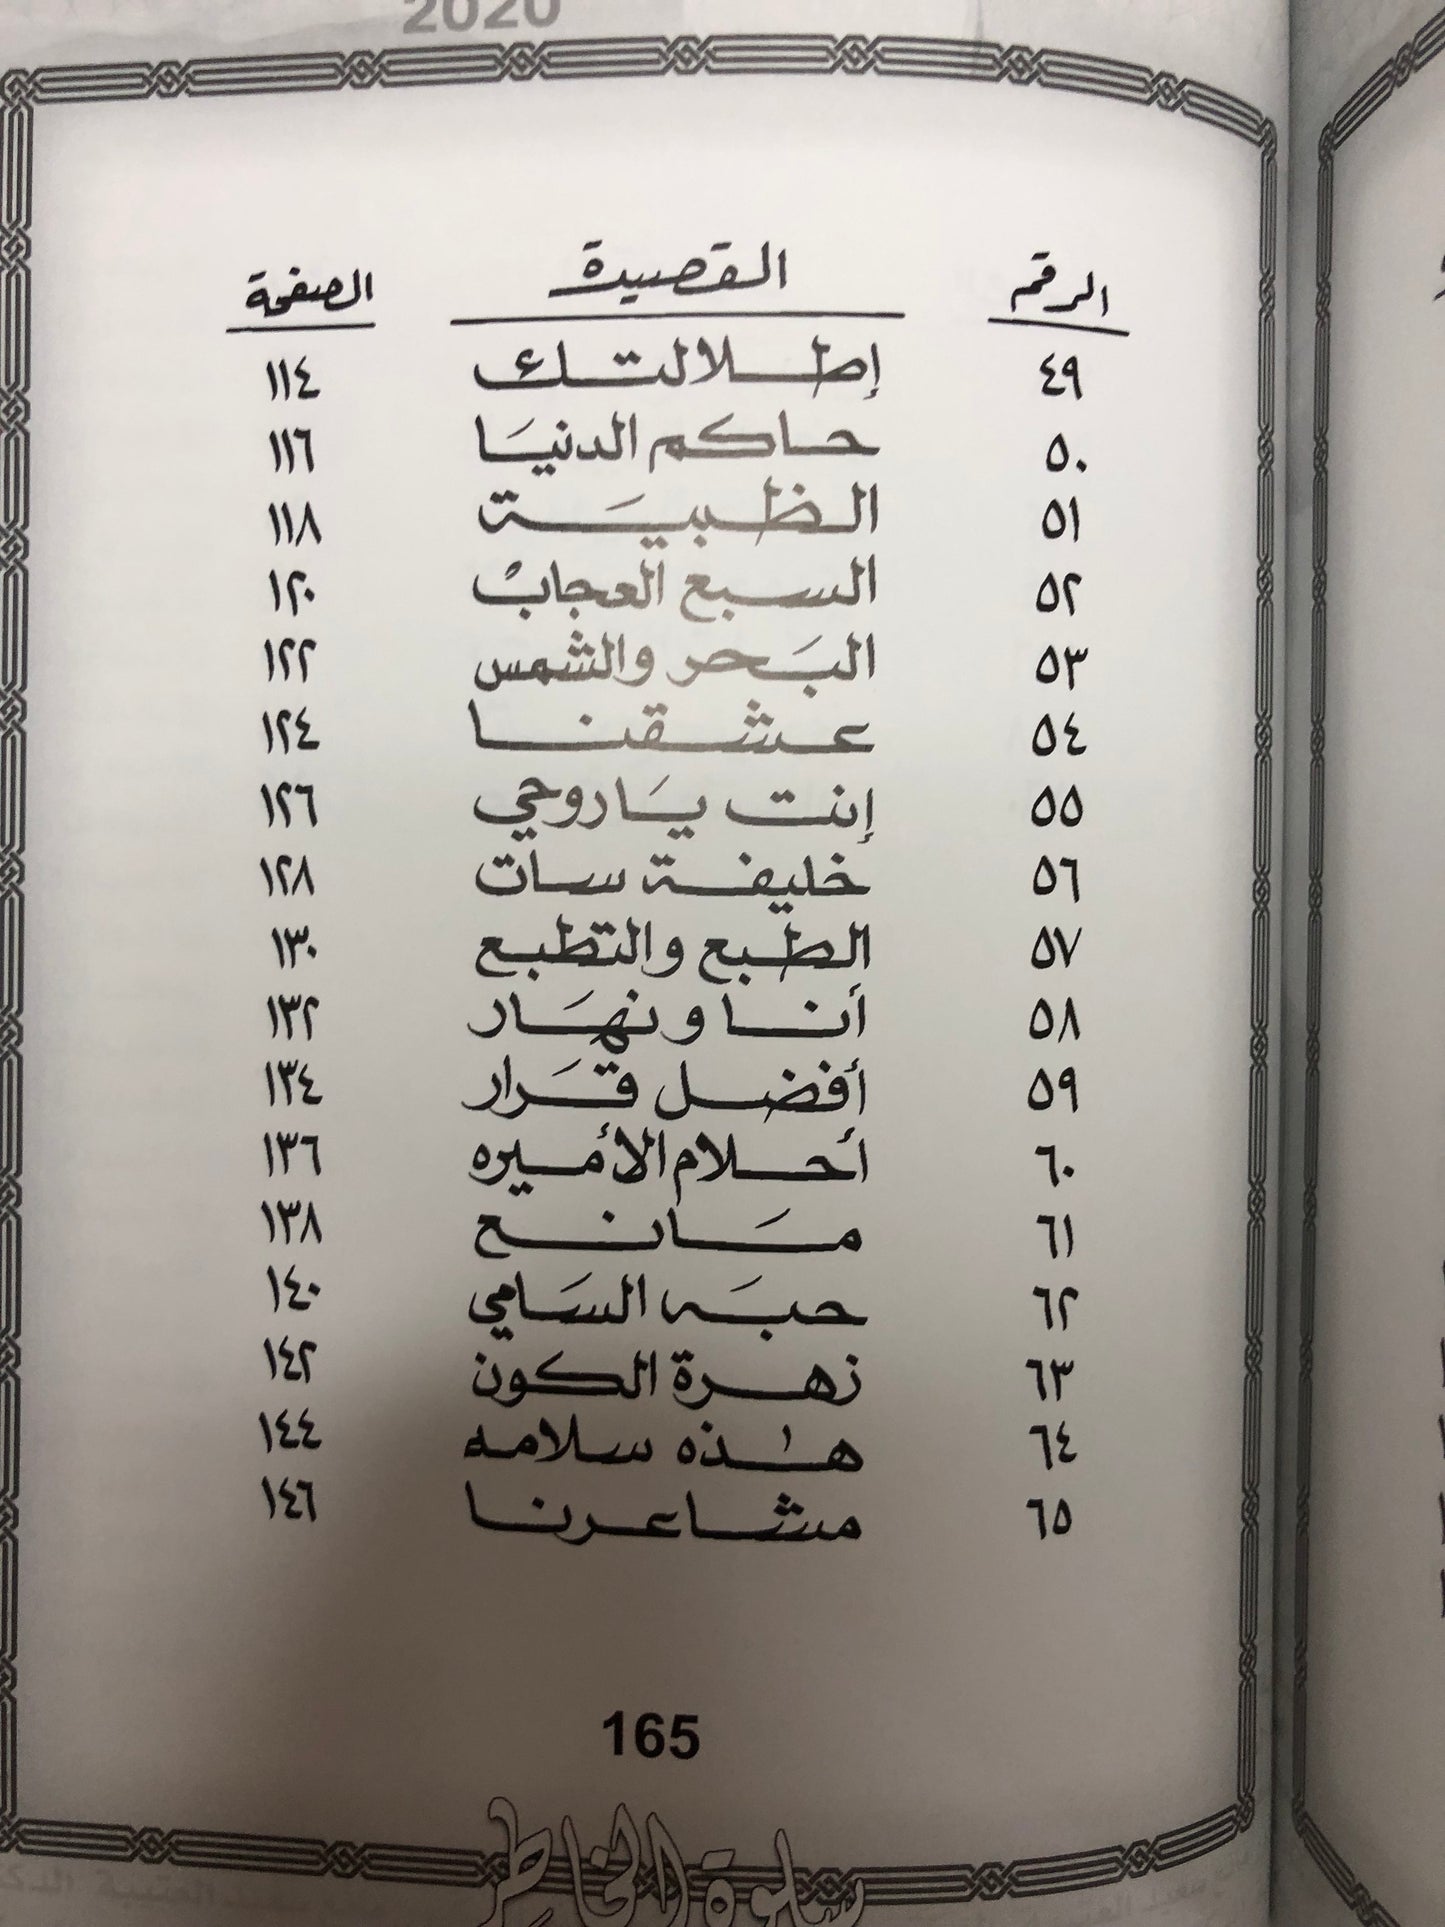 2020
الرقم القصيدة الصفحة
٤٩ إطلالتك ١١٤
٥٠ حاكم الدنيَا ١١٦
٥١ الظبيَة ١١٨
٥٢ السبع العجابْ ١٢٠
٥٣ البَحر والشمس ١٢٢
٥٤ عشقنا ١٢٤
٥٥ إنت يَاروحي ١٢٦
٥٦ خليفة سات ١٢٨
٥٧ الطبع والتطبع ١٣٠
٥٨ أنا ونهَار ١٣٢
٥٩ أفضل قَرار ١٣٤
٦٠ أحلام الأميره ١٣٦
٦١ مَانع ١٣٨
٦٢ حبَه السَامي ١٤٠
٦٣ زهرة الكون ١٤٢
٦٤ هٰذه سلامه ١٤٤
٦٥ مشاعرنا ١٤٦
165
سلوة الخاطر